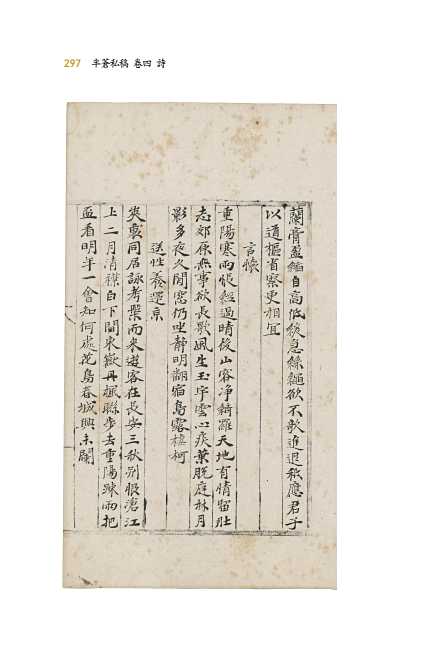 297 半蒼私稿 卷四 詩
蘭膏盈 自高低緩急絲繩欲不欹進退秖應君子
以道樞省察更相宜
言懷
重陽寒雨 經過晴後山容淨綺羅天地有情留壯
志郊原無事欲長歌風生玉宇雲心疾葉脫庭林月
影多夜久開窓仍坐靜明翻宿鳥露棲柯
送性養還京
奕裏同居詠考槃而來遊客在長安三秋別恨滄江
上二月清 白下間東嶽丹楓聯步去重陽踈雨把
盃看明年一會知何處花鳥春城興未闌